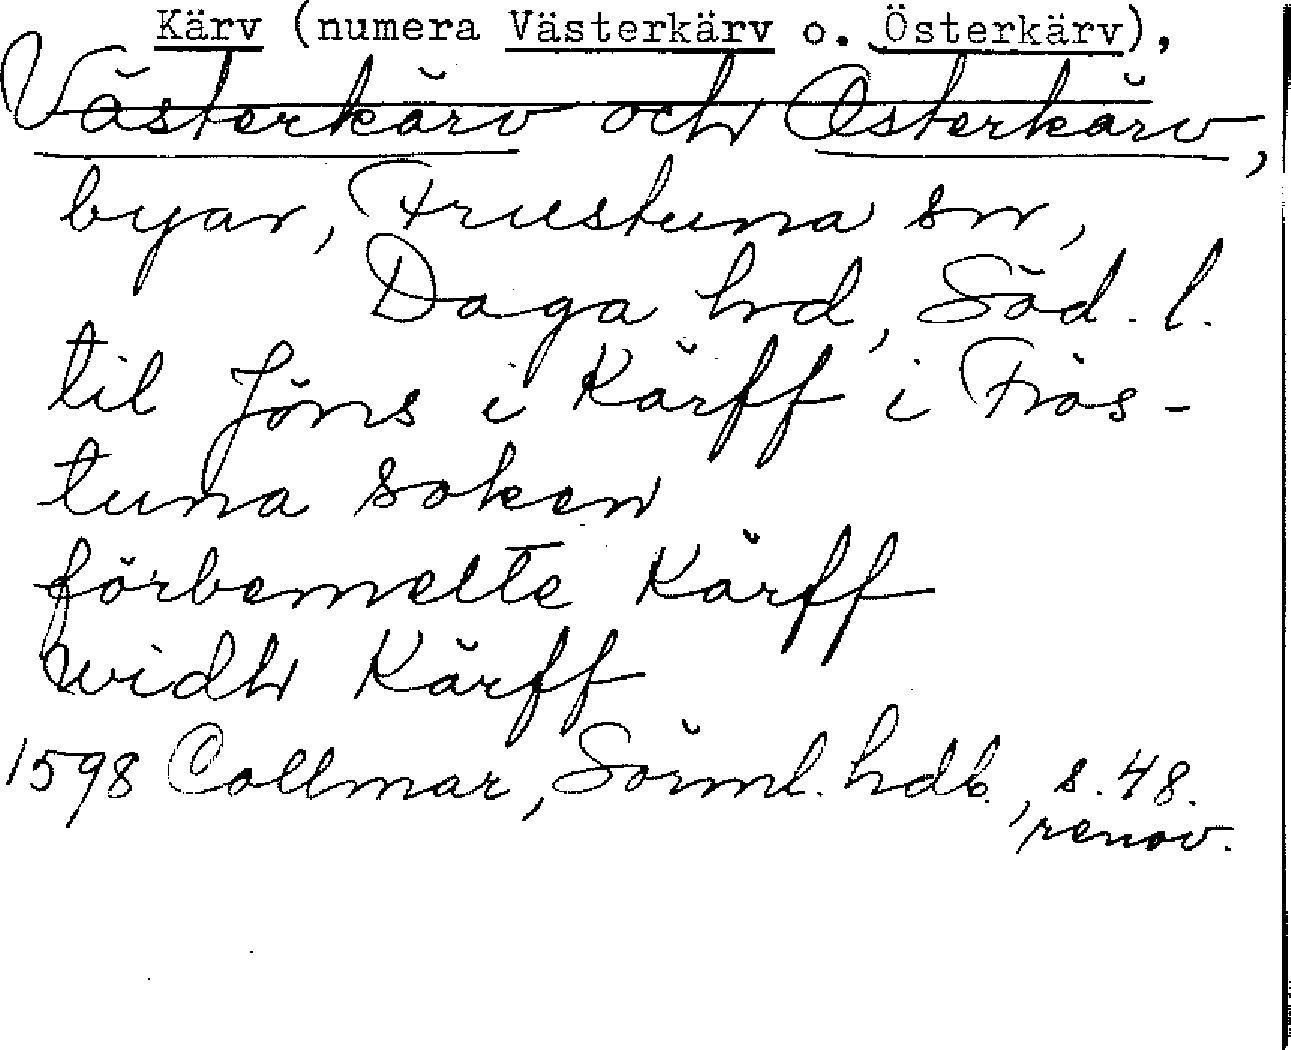 Kärv (numera Västerkärv o. Österkärv),
Västerkärv och Österkärv,
byar, Frustuna sn,
Daga hd, Söd. l.
til Jöns i Kärff i Frös-
tuna soken
förbemelte Kärff
widh Kärff
1598 Collmar, Sörml. hdb., s. 48.
renov.